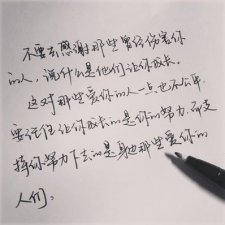 不要去感谢那些曾经伤害你
的人，说什么是他们让你成长。
这对那些爱你的人一点也不公平，
要记住让你成长的是你的努力，而支
撑你努力下去的是身边那些爱你的
人们。